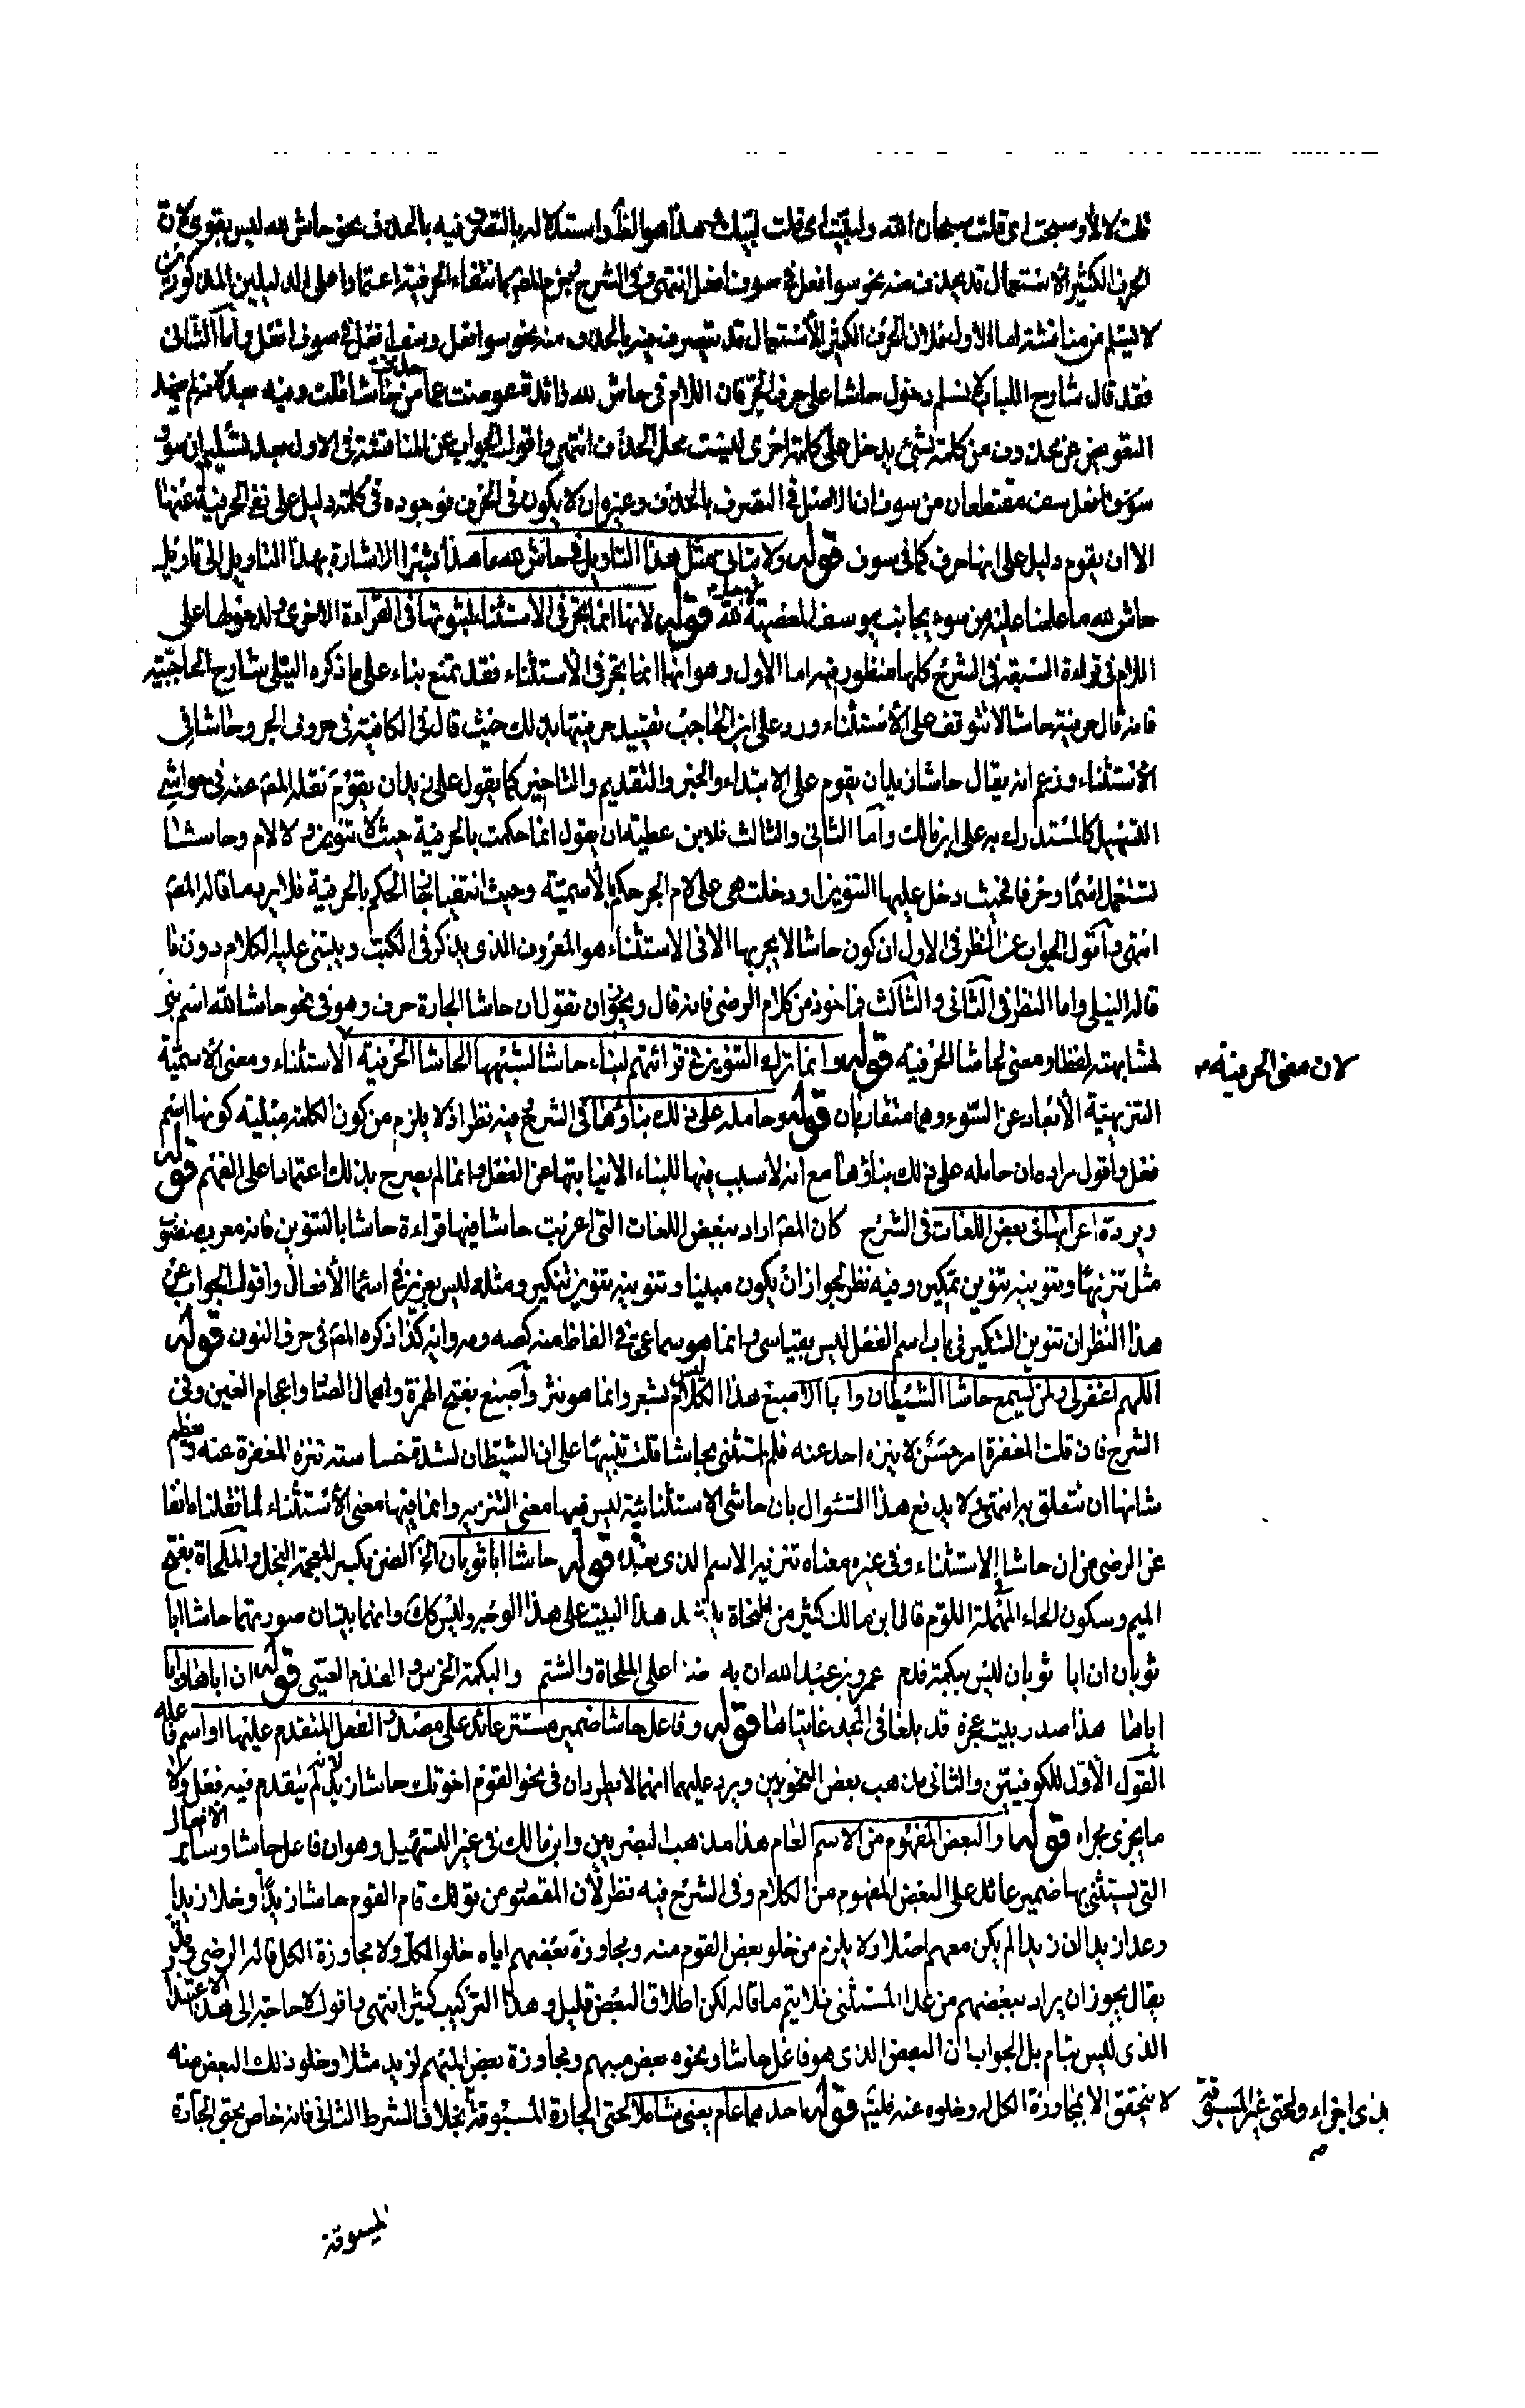 قلت لا لا وسبحت اى قلت سبحان الله ولبيت اى قلت لبيك هذا هو الظ واستدلاله بالتصرف فيه بالحذف فى نحو حاش لله ليس بقوى لان
الحرف الكثير الاستعمال قد يحذف منه نحو سو افعل فى سوف افعل انتهى وفى الشرح جزم المص بانتفاء الحرفية اعتمادا على الدليلين المذكورين
لا يسلم من مناقشة اما الاول فلان الحرف الكثير الاستعمال قد يتصرف فيه بالحذف منه نحو سو افعل وسف افعل فى سوف افعل واما الثانى
فقد قال شارح اللباب لا نسلم دخول حاشا على حرف الجر فان اللام فى حاش لله زائدة عوضت عما حذف من حاشا قلت وفيه بعد لانه لم يعهد
التعويض عن محذوف من كلمة بشئ يدخل على كلمة اخرى ليست محل الحذف انتهى واقول الجواب عن المناقشة فى الاول بعد تسليم ان سو
سو افعل سف مقتطعان من سوف ان الاصل فى التصرف بالحذف وغيره ان لا يكون فى الحرف فوجوده فى كلمة دليل على نفى الحرفية عنها
الا ان يقوم دليل على انها حرف كما فى سوف قوله ولا يتاتى مثل هذا التاويل فى حاش لله ما هذا بشرا الاشارة بهذا التاويل الى تاويل
حاش لله ما علمنا عليه من سوء بجانب يوسف المعصية لاجل الله قوله لانها انما تجر فى الاستثناء لثبوتها فى القراءة الاخرى ولدخولها على
اللام فى قراءة السبعة فى الشرح كلها منظور فيه اما الاول وهو انها انما تجر فى الاستثناء فقد تمنع بناء على ما ذكره النيلى شارح الحاجبية
فانه قال حرفية حاشا لا تتوقف على الاستثناء ورد على ابن الحاجب تقييد حرفيتها بذلك حيث قال فى الكافية فى حروف الجر وحاشا فى
الاستثناء وزعم انه يقال حاشا زيد ان يقوم على الابتداء والخبر والتقديم والتاخير كما يقول على زيد ان يقوم نقله المص عنه فى حواشى
التسهيل كالمستدرك به على ابن مالك واما الثانى والثالث فلابن عطية ان يقول انما حكمت بالحرفية حيث لا تنوين ولا لام وحاشا
تستعمل اسما وحرفا فحيث دخل عليها التنوين او دخلت هى على لام الجر حكم بالاسمية وحيث انتفيا الحكم بالحرفية فلا يرد ما قاله المص
انتهى واقول الجواب عن النظر فى الاول ان كون حاشا لا يجر بها الا فى الاستثناء هو المعروف الذى يذكر فى الكتب ويبتنى عليه الكلام دون ما
قاله النيلى واما النظر فى الثانى والثالث فماخوذ من كلام الرضى فانه قال ويجوز ان تقول ان حاشا الجارة حرف وهو فى نحو حاشا لله اسم بنى
لمشابهته لفظا ومعنى لحاشا الحرفية قوله وانما ترك التنوين فى قرائتهم لبناء حاشا لشبهها بحاشا الحرفية الاستثناء ومعنى الاسمية
لان معنى الحرفية م
التنزيهية الابعاد عن السوء وهما متقاربان قوله وحامله على ذلك بناؤها فى الشرح فيه نظر اذ لا يلزم من كون الكلمة مبنية كونها اسم
فعل واقول مراده ان حامله على ذلك بناؤها مع انه لا سبب فيها للبناء الا نيابتها عن الفعل وانما لم يصرح بذلك اعتمادا على الفهم قوله
ويرده اعرابها فى بعض اللغات فى الشرح كان المص اراد ببعض اللغات التى اعربت حاشا فيها قراءة حاشا بالتنوين فانه معرب منصوب
مثل تنزيها وتنوينه تنوين تمكين وفيه نظر لجواز ان يكون مبنيا وتنوينه تنوين تنكير ومثله ليس بعزيز فى اسما الافعال واقول الجواب عن
هذا النظر ان تنوين التنكير فى باب اسم الفعل ليس بقياسى وانما هو سماعى فى الفاظ منه كصه ومه وايه كذا ذكره المص فى حرف النون قوله
اللهم اغفر لى ولمن يسمع حاشا الشيطان وابا الاصبغ هذا الكلام ليس بشعر وانما هو نثر واصبغ بفتح الهمزة واهمال الصاد واعجام الغين وفى
الشرح فان قلت المغفرة امر حسن لا ينزه احد عنه فلم استثنى بحاشا قلت تنبيها على ان الشيطان لشدة خساسته تنزه المغفرة عنه ويعظم
شانها ان تتعلق به انتهى ولا يدفع هذا السئوال بان حاشى الاستثنائية ليس فيها معنى التنزيه وانما فيها معنى الاستثناء لما نقلناه انفا
عن الرضى من ان حاشا للاستثناء وفى غيره معناه تنزيه الاسم الذى بعده قوله حاشا ابا ثوبان الخ الضن بكسر المعجمة البخل والملحاة بفتح
الميم وسكون الحاء المهملة اللوم قال ابن مالك كثير من النحاة ينشد هذا البيت على هذا الوجه وليس كك وانما بيتان صورتهما حاشا ابا
ثوبان ان ابا ثوبان ليس ببكمة فدم عمرو بن عبد الله ان به ضنا على الملحاة والشتم والبكمة الخرس والفدم العيى قوله ان اباها وابا
اباها هذا صدر بيت عجزه قد بلغا فى المجد غايتاها قوله وفاعل حاشا ضمير مستتر عائد على مصدر الفعل المتقدم عليها او اسم فاعله
القول الاول للكوفيين والثانى مذهب بعض النحويين ويرد عليهما انهما لا يطردان فى نحو القوم اخوتك حاشا زيدا لانه لم يتقدم فيه فعل ولا
ما يجرى مجراه قوله او البعض المفهوم من الاسم العام هذا مذهب البصريين وابن مالك فى غير التسهيل وهو ان فاعل حاشا وسائر الافعال
التى يستثنى بها ضمير عائد على البعض المفهوم من الكلام وفى الشرح فيه نظر لان المقصود من قولك قام القوم حاشا زيدا وخلا زيدا
وعدا زيدا ان زيدا لم يكن معهم اصلا ولا يلزم من خلو بعض القوم منه ومجاوزة بعضهم اياه خلو الكل ولا مجاوزة الكل قاله الرضى وقد
يقال يجوز ان يراد ببعضهم من عدا المستثنى فلا يتم ما قاله لكن اطلاق البعض قليل وهذا التركيب كثير انتهى واقول لا حاجة الى هذا الاعتذار
الذى ليس بتام بل الجواب ان البعض الذى هو فاعل حاشا ونحوه بعض مبهم ومجاوزة بعض المبهم لزيد مثلا وخلو ذلك البعض منه
لا يتحقق الا بمجاوزة الكل له وخلوه عنه قوله احدهما عام يعنى شاملا لحتى الجارة المسبوقة بخلاف الشرط الثانى فانه خاص بحتى الجارة
بذى اجزاء ولحتى غير المسبوقة م
المسبوقة